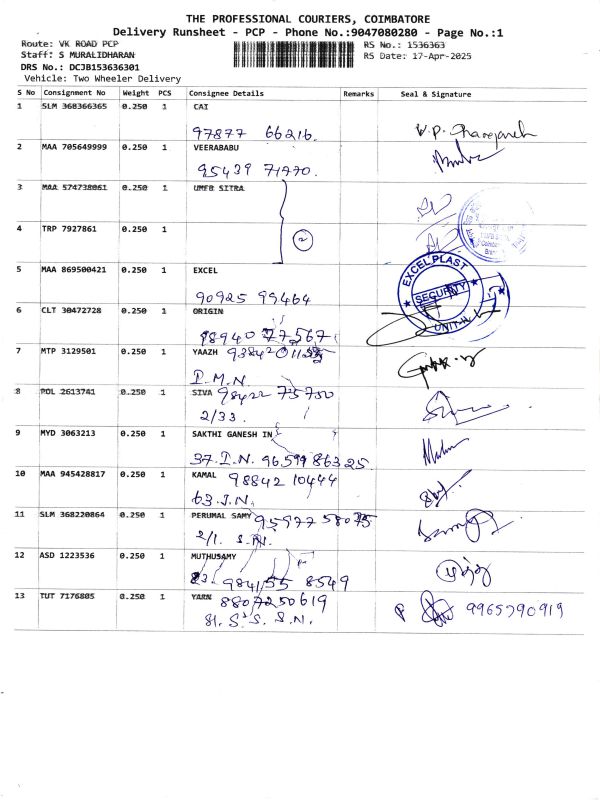 THE PROFESSIONAL COURIERS, COIMBATORE
Delivery Runsheet - PCP - Phone No.:9047080280 - Page No.:1
Route: VK ROAD PCP
Staff: S MURALIDHARAN
DRS No.: DCJB153636301
Vehicle: Two Wheeler Delivery
RS No.: 1536363
RS Date: 17-Apr-2025
S No Consignment No Weight PCS Consignee Details Remarks Seal & Signature
1 SLM 368366365 0.250 1 CAI
97877 66216.
2 MAA 705649999 0.250 1 VEERABABU
95439 71770.
3 MAA 574738061 0.250 1 UMEB SITRA
4 TRP 7927861 0.250 1
2
5 MAA 869500421 0.250 1 EXCEL
90925 99464
EXCEL PLAST
SECURITY
UNIT-II
6 CLT 30472728 0.250 1 ORIGIN
98940 77567
7 MTP 3129501 0.250 1 YAAZH
I.M.N.
8 POL 2613741 0.250 1 SIVA 98422 75750
2/33.
9 MYD 3063213 0.250 1 SAKTHI GANESH IN
37.I.N. 96599 86325
10 MAA 945428817 0.250 1 KAMAL 98842 10444
63.I.N.
11 SLM 368220864 0.250 1 PERUMAL SAMY 95977 58075
2/1. S.N.
12 ASD 1223536 0.250 1 MUTHUSAMY
984155 8549
13 TUT 7176805 0.250 1 YARN 8807250619
81. S.S. S.N.
9965790919